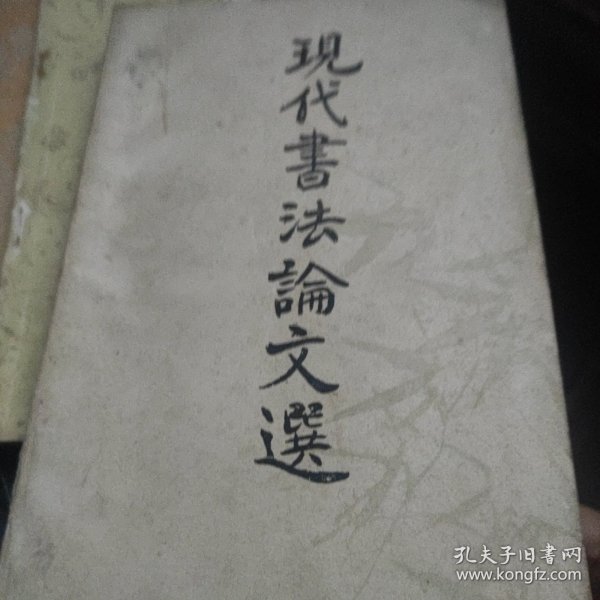 現代書法論文選
孔夫子旧書网
www.kongfz.com